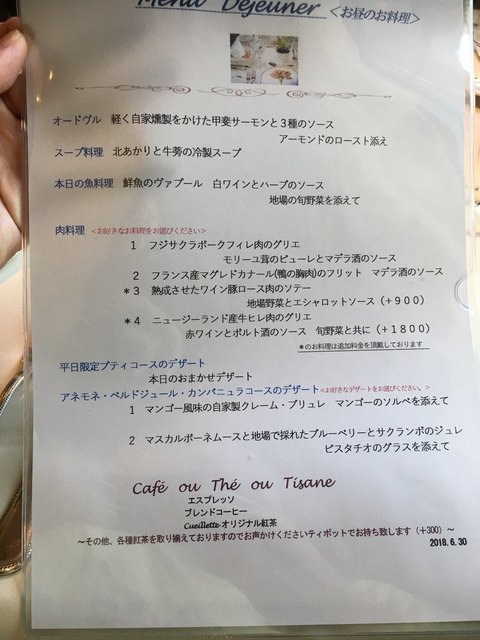 Menu Déjeuner <お昼のお料理>
オードヴル 軽く自家燻製をかけた甲斐サーモンと３種のソース
アーモンドのロースト添え
スープ料理 北あかりと牛蒡の冷製スープ
本日の魚料理 鮮魚のヴァプール 白ワインとハーブのソース
地場の旬野菜を添えて
肉料理 <お好きなお料理をお選びください>
１ フジサクラポークフィレ肉のグリエ
モリーユ茸のピューレとマデラ酒のソース
２ フランス産マグレドカナール(鴨の胸肉)のフリット マデラ酒のソース
＊３ 熟成させたワイン豚ロース肉のソテー
地場野菜とエシャロットソース（＋９００）
＊４ ニュージーランド産牛ヒレ肉のグリエ
赤ワインとポルト酒のソース 旬野菜と共に（＋１８００）
＊のお料理は追加料金を頂戴しております
平日限定プティコースのデザート
本日のおまかせデザート
アネモネ・ベルドジュール・カンパニュラコースのデザート<お好きなデザートをお選びください。>
１ マンゴー風味の自家製クレーム・ブリュレ マンゴーのソルベを添えて
２ マスカルポーネムースと地場で採れたブルーベリーとサクランボのジュレ
ピスタチオのグラスを添えて
Café ou Thé ou Tisane
エスプレッソ
ブレンドコーヒー
Cueillette オリジナル紅茶
～その他、各種紅茶を取り揃えておりますのでお声かけくださいティポットでお持ち致します（＋300）～
2018. 6. 30